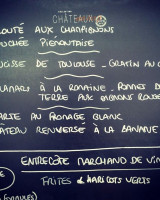 CHÂTEAUX
OUTÉ AUX CHAMPIGNONS
OUCHÉE PIÉMONTAISE
CISSE DE TOULOUSE - GRATIN AU C
ALAMARS À LA ROMAINE - POMMES D
TERRE AUX OIGNONS ROUGE
ARTE AU FROMAGE BLANC
ÂTEAU RENVERSÉ À LA BANANE
ENTRECÔTE MARCHAND DE VIN
FRITES & HARICOTS VERTS
FORMULES)